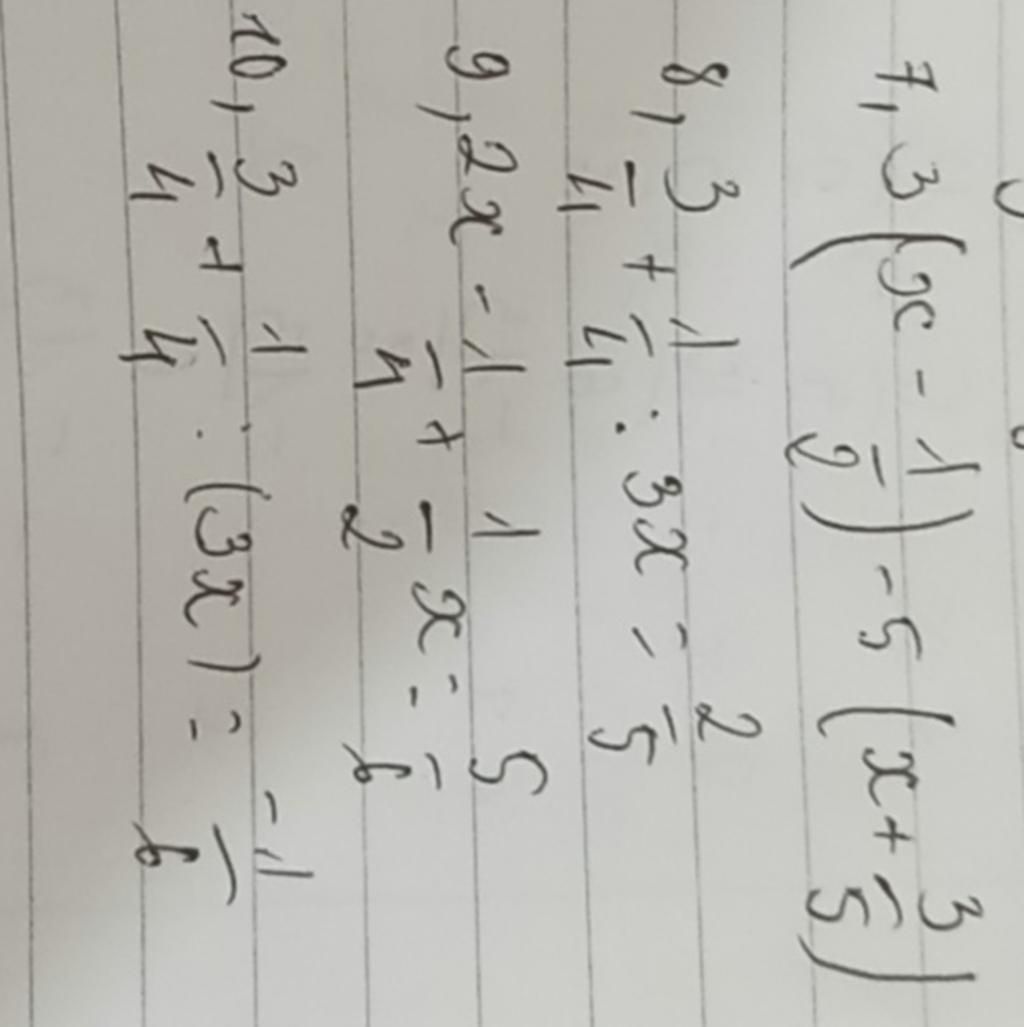 7, 3(x - 1/2) - 5(x + 3/5)
8, 3/4 + 1/4 : 3x = 2/5
9, 2x - 1/4 + 1/2 x = 5/6
10, 3/4 + 1/4 : (3x) = -1/6